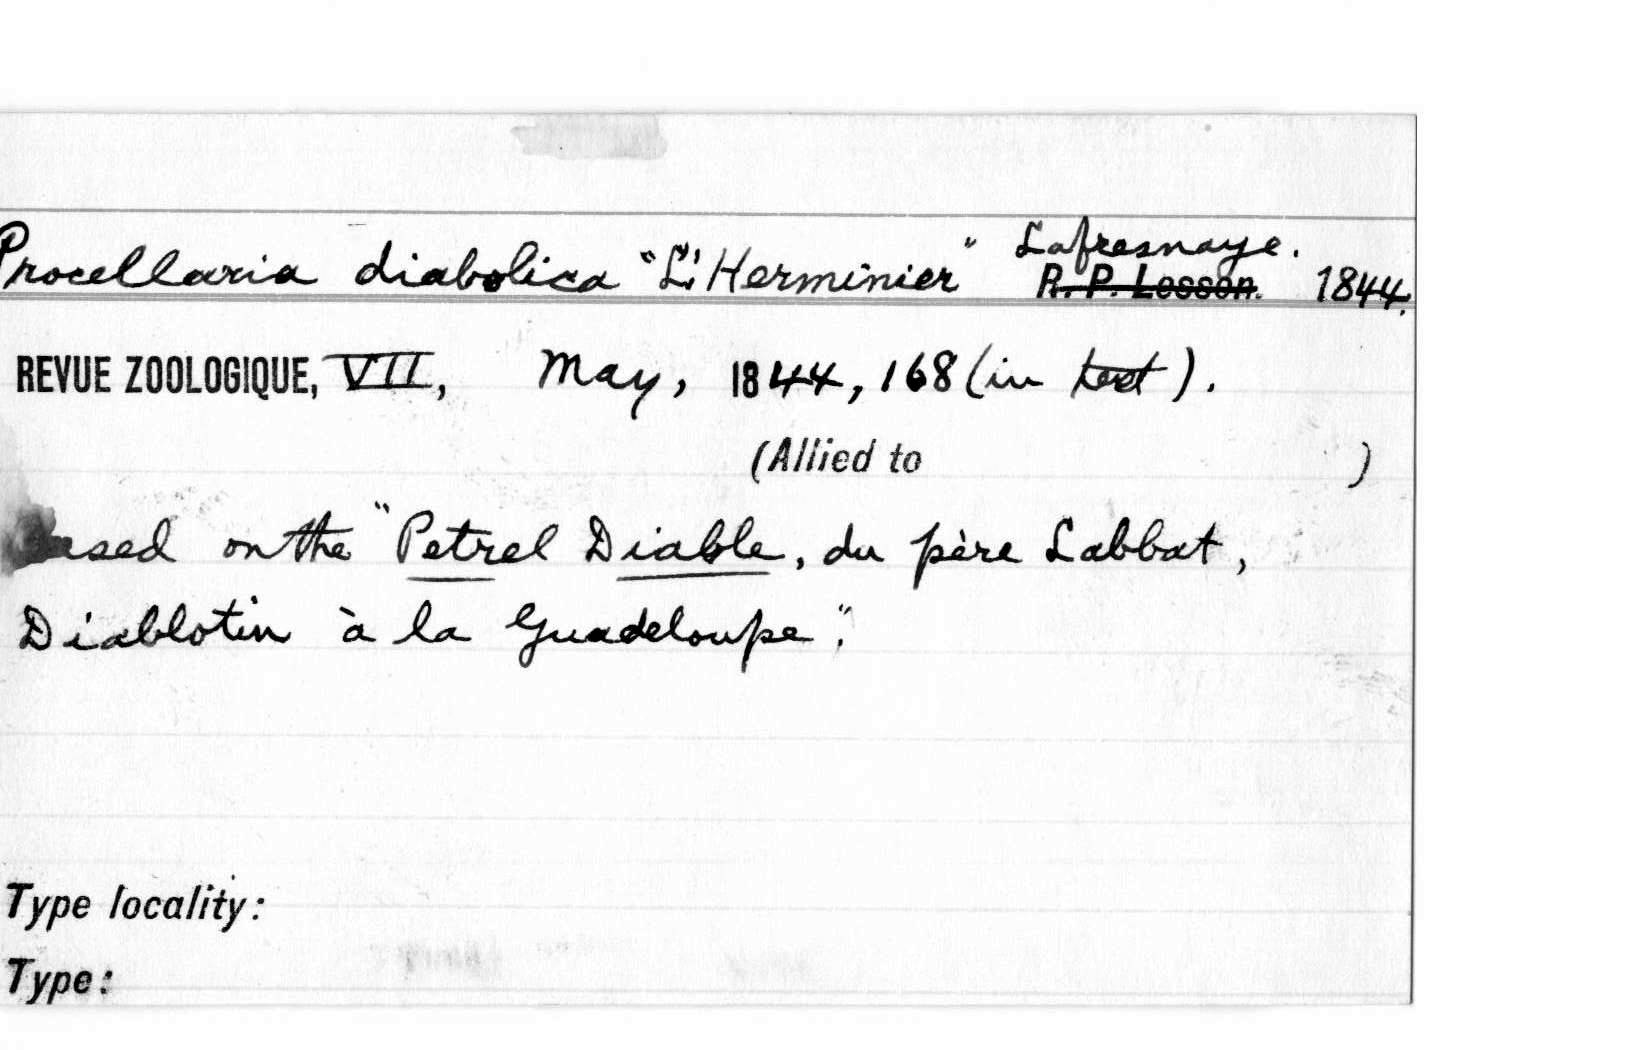 Procellaria diabolica "L'Herminier" Lafresnaye.
R. P. Lesson. 1844.
REVUE ZOOLOGIQUE, VII, May, 1844, 168 (in text).
(Allied to )
Based on the "Petrel Diable, du père Labbat,
Diablotin à la Guadeloupe".
Type locality:
Type: